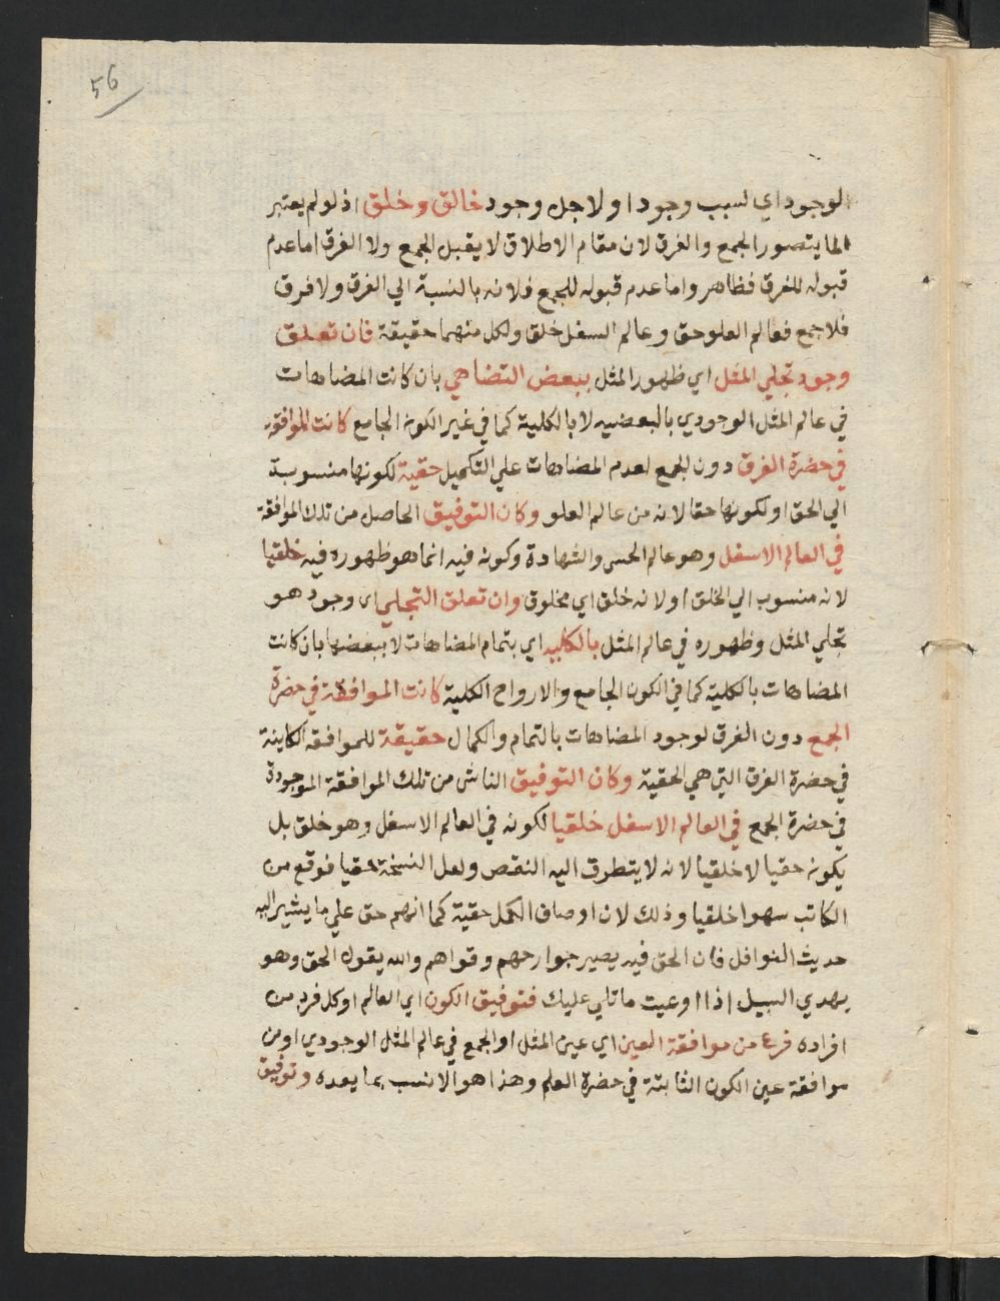 56
الوجود اي لسبب وجود او لاجل وجود خالق وخلق اذ لولم يعتبر
لما يتصور الجمع والفرق لان مقام الاطلاق لا يقبل الجمع ولا الفرق اما عدم
قبوله للفرق فظاهر واما عدم قبوله للجمع فلانه بالنسبة الي الفرق ولا فرق
فلا جمع فعالم العلو حق وعالم السفل خلق ولكل منهما حقيقة فان تعلق
وجود تجلي المثل اي ظهور المثل ببعض التضاهي بان كانت المضاهات
في عالم المثل الوجودي بالبعضيه لا بالكلية كما في غير الكون الجامع كانت الموافقه
في حضرة الفرق دون الجمع لعدم المضاهات علي التكميل حقية لكونها منسوبة
الي الحق او لكونها حقا لانه من عالم العلو وكان التوفيق الحاصل من تلك الموافقة
في العالم الاسفل وهو عالم الحس والشهادة وكونه فيه انما هو ظهوره فيه خلقيا
لانه منسوب الي الخلق او لانه خلق اي مخلوق وان تعلق التجلي اي وجود هو
تجلي المثل وظهوره في عالم المثل بالكليه اي بتمام المضاهات لا ببعضها بان كانت
المضاهات بالكلية كما في الكون الجامع والارواح الكلية كانت الموافقة في حضرة
الجمع دون الفرق لوجود المضاهات بالتمام والكمال حقيقة للموافقه الكاينة
في حضرة الفرق التي هي الحقية وكان التوفيق الناش من تلك الموافقة الموجودة
في حضرة الجمع في العالم الاسفل خلقيا لكونه في العالم الاسفل وهو خلق بل
يكون حقيا لا خلقيا لانه لا يتطرق اليه النقص ولعل النسخة حقيا فوقع من
الكاتب سهوا خلقيا وذلك لان اوصاف الكمل حقية كما انهم حق علي ما يشير اليه
حديث النوافل فان الحق فيه يصير جوارحهم وقواهم والله يقول الحق وهو
يهدي السبيل اذا اوعيت ما تلي عليك فتوفيق الكون اي العالم او كل فرد من
افراده فرع من موافقة العين اي عين المثل او الجمع في عالم المثل الوجودي او من
موافقة عين الكون الثابتة في حضرة العلم وهذا هو الانسب بما يعده وتوفيق